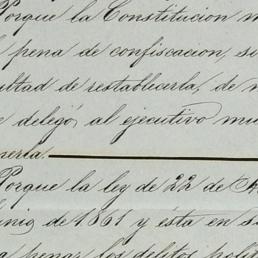 Porque la Constitucion
pena de confiscacion,
ultad de restablecerla, de
delegó, al ejecutivo
nerla.
Porque la ley de 22 de
unio de 1861 y ésta en
penar los delitos